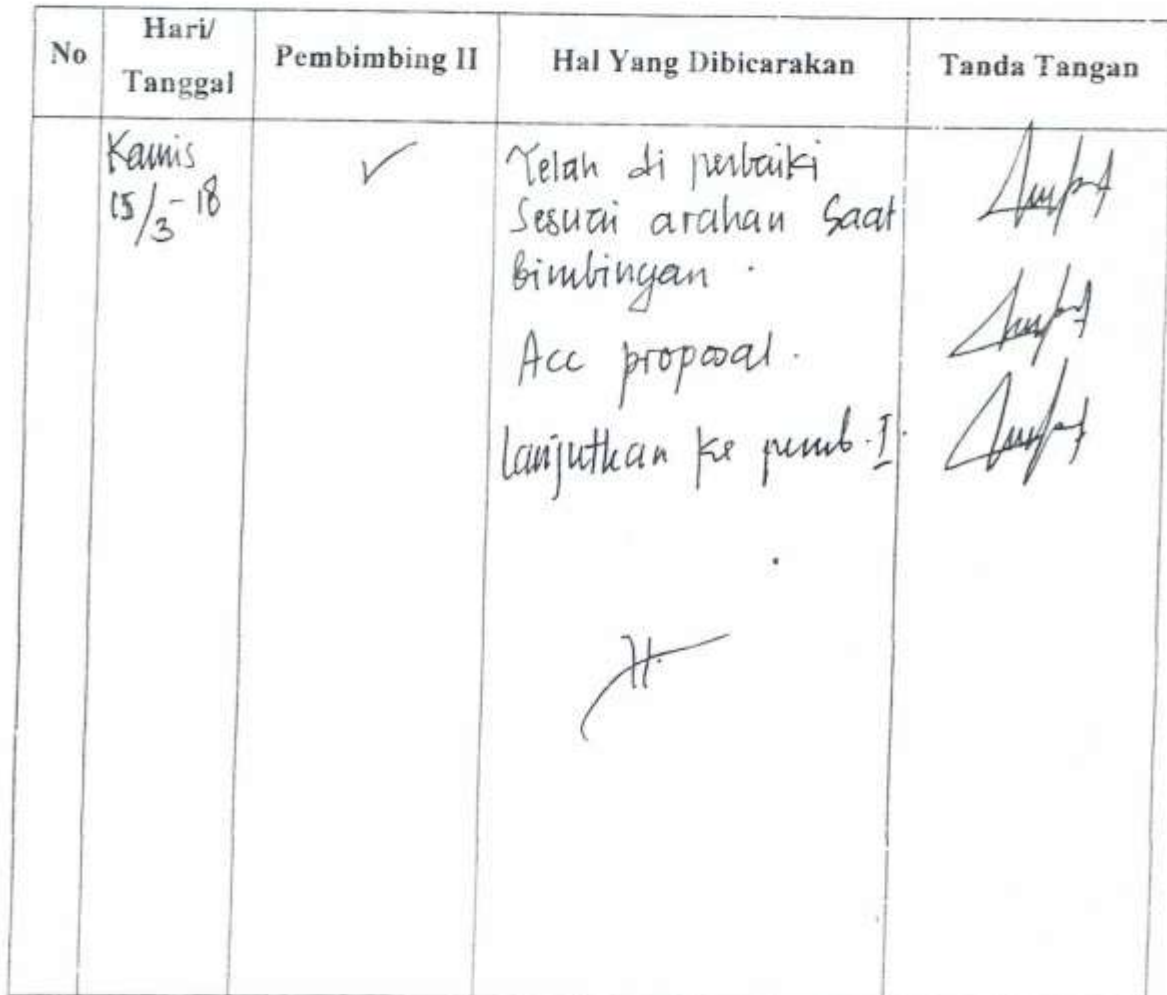 No Hari/ Tanggal Pembimbing II Hal Yang Dibicarakan Tanda Tangan
Kamis
15/3-18
✓
Telah di perbaiki
Sesuai arahan Saat
Bimbingan.
Acc proposal.
lanjutkan ke pemb. I.